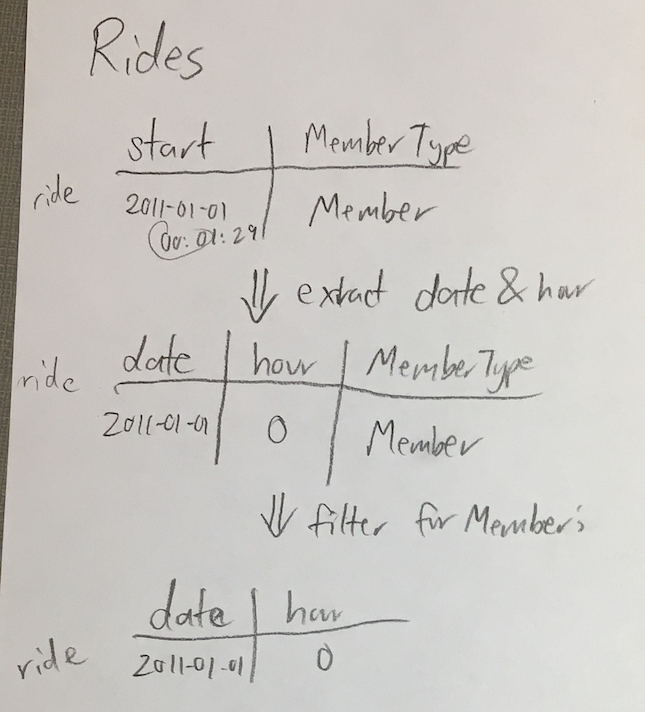 Rides
start | MemberType
ride 2011-01-01 | Member
00:01:29
⇓ extract date & hour
date | hour | MemberType
ride 2011-01-01 | 0 | Member
⇓ filter for Member's
date | hour
ride 2011-01-01 | 0